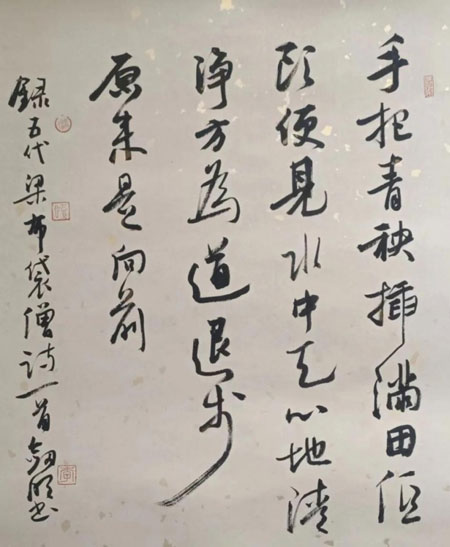 手把青秧插滿田低
頭便見水中天心地清
淨方為道退步
原来是向前
録五代梁布袋僧詩一首